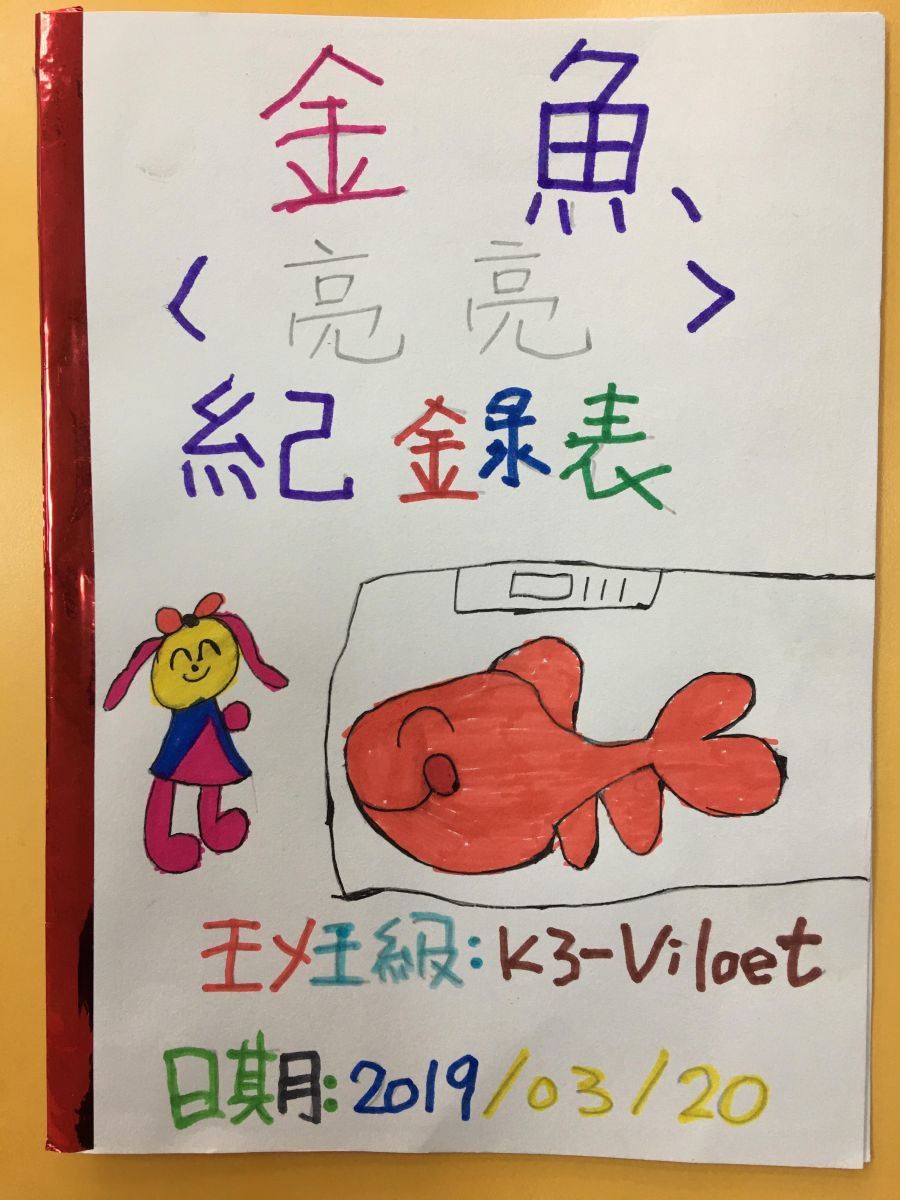 金魚
<亮亮>
紀錄表
班級:K3-Viloet
日期:2019/03/20